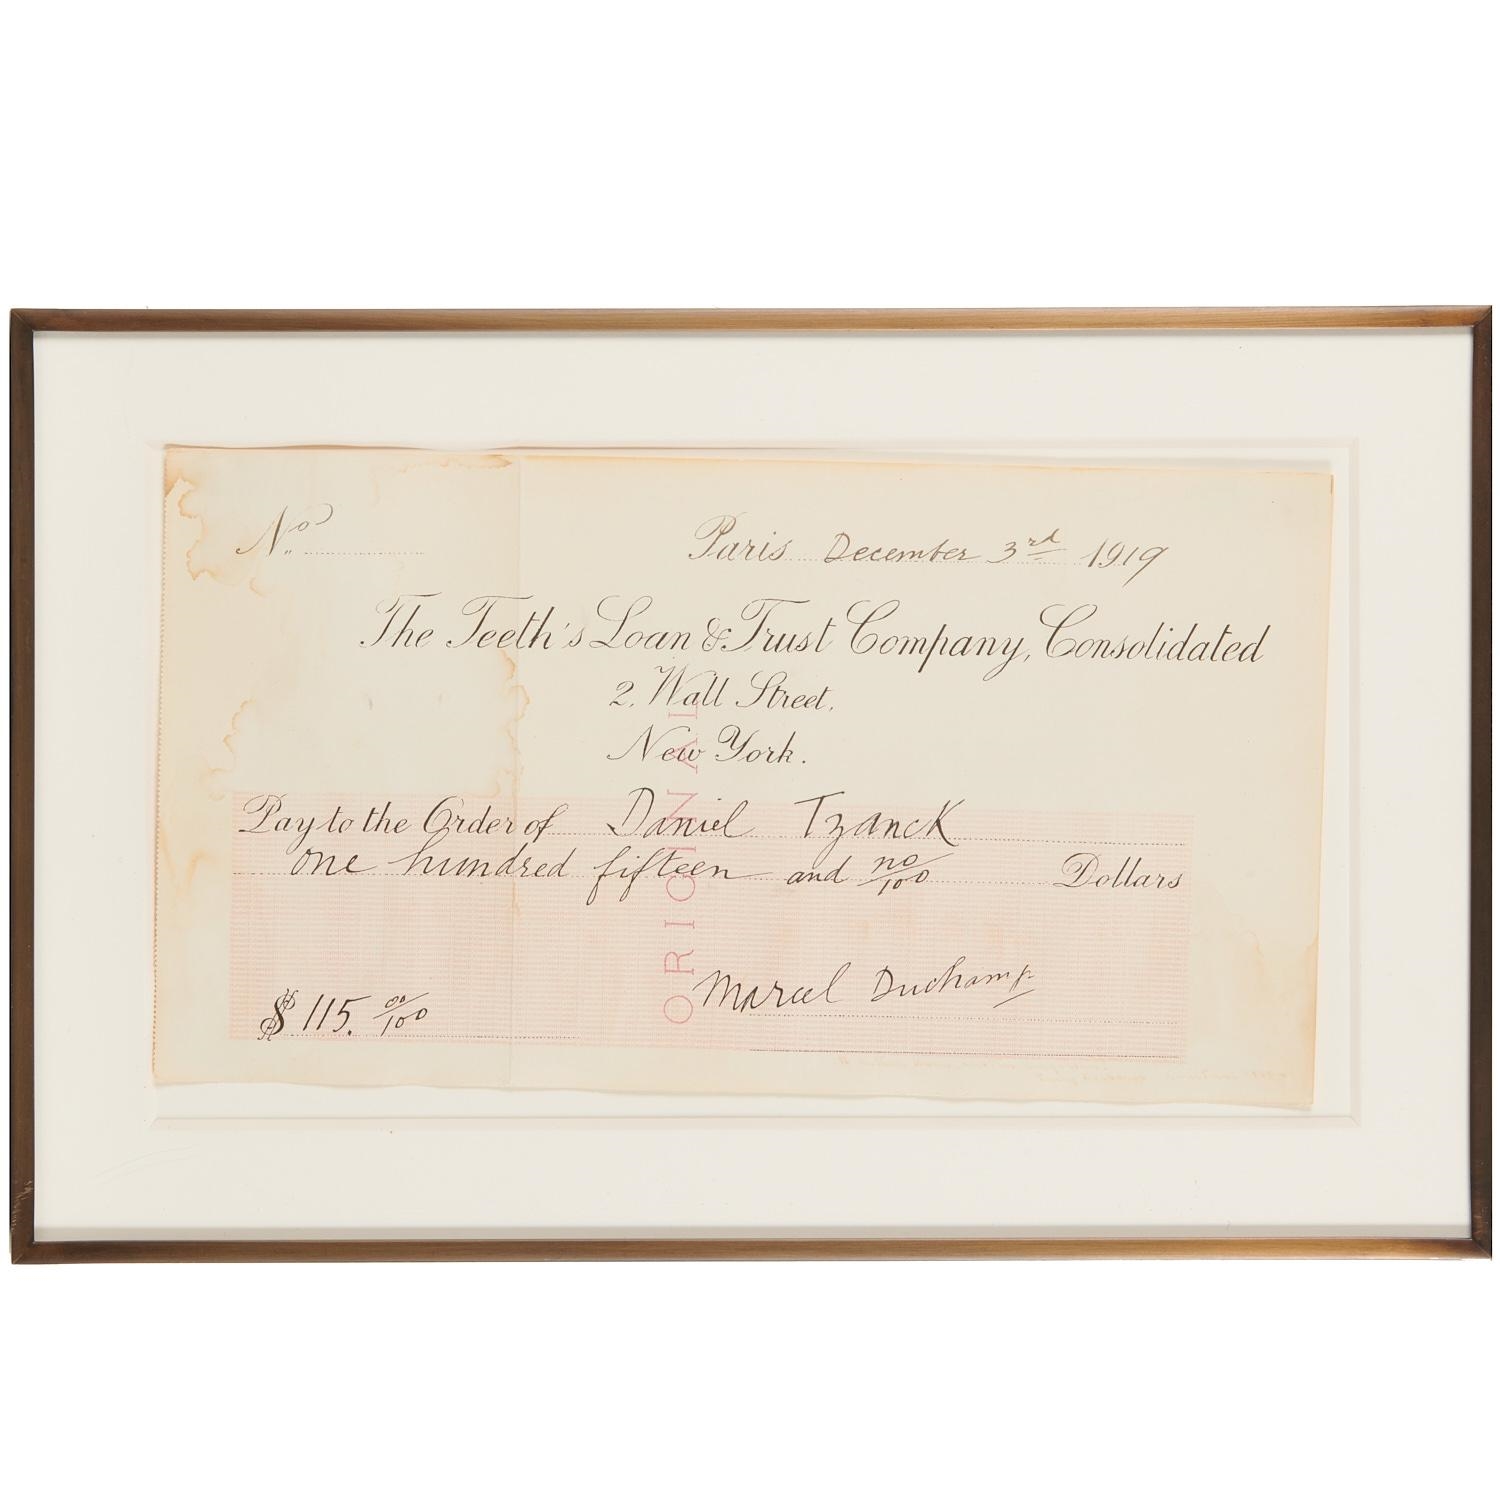 No
Paris December 3rd 1919
The Teeth's Loan & Trust Company, Consolidated
2, Wall Street,
New York.
Pay to the Order of Daniel Tzanck
one hundred fifteen and no/100 Dollars
ORIGINAL
Marcel Duchamp
$ 115. 00/100